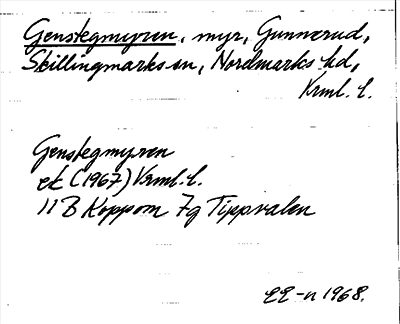 Genstegmyren, myr, Gunnerud,
Skillingmarks sn, Nordmarks hd,
Krml. l.
Genstegmyren
ek (1967) Krml. l.
11 B Koppom 7g Tippvalen
EE-n 1968.